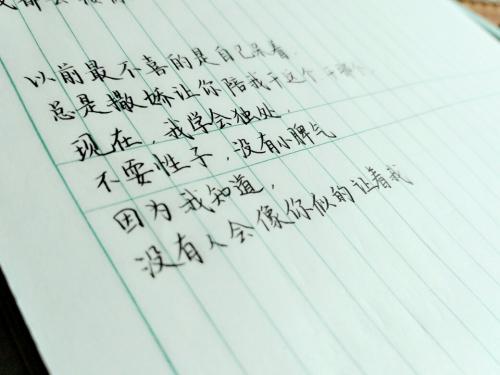 以前最不喜的是自己呆着.
总是撒娇让你陪我干这个干那个
现在，我学会独处，
不耍性子，没有小脾气
因为我知道，
没有人会像你似的让着我